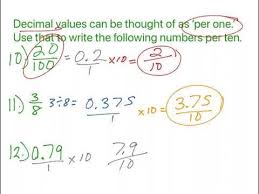 Decimal values can be thought of as 'per one."
Use that to write the following numbers per ten.
10) 20/100 = 0.2/1 ×10 = 2/10
11.) 3/8 3÷8= 0.375/1 ×10 = 3.75/10
12.) 0.79/1 ×10 7.9/10